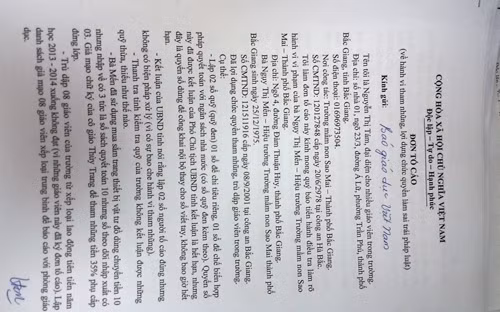 CỘNG HÒA XÃ HỘI CHỦ NGHĨA VIỆT NAM
Độc lập – Tự do – Hạnh phúc
ĐƠN TỐ CÁO
(về hành vi tham nhũng, lợi dụng chức quyền làm sai trái pháp luật)
Kính gửi: Báo giáo dục Việt Nam
Tên tôi là Nguyễn Thị Tâm, đại diện cho nhiều giáo viên trong trường.
Địa chỉ: số nhà 01, ngõ 233, đường Á Lữ, phường Trần Phú, thành phố
Bắc Giang, tỉnh Bắc Giang.
Số điện thoại: 01696973504.
Nơi công tác: Trường mầm non Sao Mai – Thành phố Bắc Giang.
Số CMTND: 120127848 cấp ngày 20/6/1978 tại công an Hà Bắc.
Tôi làm đơn tố cáo này kính mong quý báo tiến hành điều tra làm rõ
hành vi vi phạm của bà Ngọ Thị Mến – Hiệu trưởng Trường mầm non Sao
Mai – Thành phố Bắc Giang.
Địa chỉ: Ngõ 4, đường Đàm Thuận Huy, thành phố Bắc Giang.
Bà Ngọ Thị Mến – Hiệu trưởng Trường mầm non Sao Mai thành phố
Bắc Giang sinh ngày 25/12/1975.
Số CMTND: 121511916 cấp ngày 08/9/2001 tại công an Bắc Giang.
Đã lợi dụng chức quyền tham nhũng, trù dập giáo viên trong trường,
Cụ thể:
- Lập 02 số quỹ (quỹ đen) 01 số để chi tiêu riêng, 01 số để chế biến hợp
pháp quyết toán với ngân sách nhà nước (có số quỹ đen kèm theo). Quyển số
này đã được kết luận của Phó Chủ tịch UBND tỉnh kết luận là hết hạn, nhưng
đây là quyển số dùng để công khai nội bộ thay cho số viết tay, không bao giờ hết
hạn.
- Kết luận của UBND tỉnh nói rằng lập 02 số người tố cáo đúng nhưng
không có biện pháp xử lý (vì có sự bao che hành vi tham nhũng).
- Thanh tra tỉnh kiểm tra quỹ của trường không kết luận được những
quỹ thừa, thiếu như thế nào.
- Bà Mến đã sử dụng mua sắm trang thiết bị vật tư đồ dùng chuyển tiền 10
nhưng nhập về có 3 tức là số sách quyết toán 10 nhưng số theo dõi nhập xuất có
03. Giả mạo chữ ký của cô giáo Thủy Trang để tham nhũng tiền 35% phụ cấp
đứng lớp.
- Trù dập 08 giáo viên của trường từ xếp loại lao động tiên tiến năm
học 2013 - 2014 xuống không đạt (vì những giáo viên này đã ký đơn tố cáo). Lập
danh sách giả mạo 08 giáo viên xếp loại trung bình để báo cáo với phòng giáo
dục.